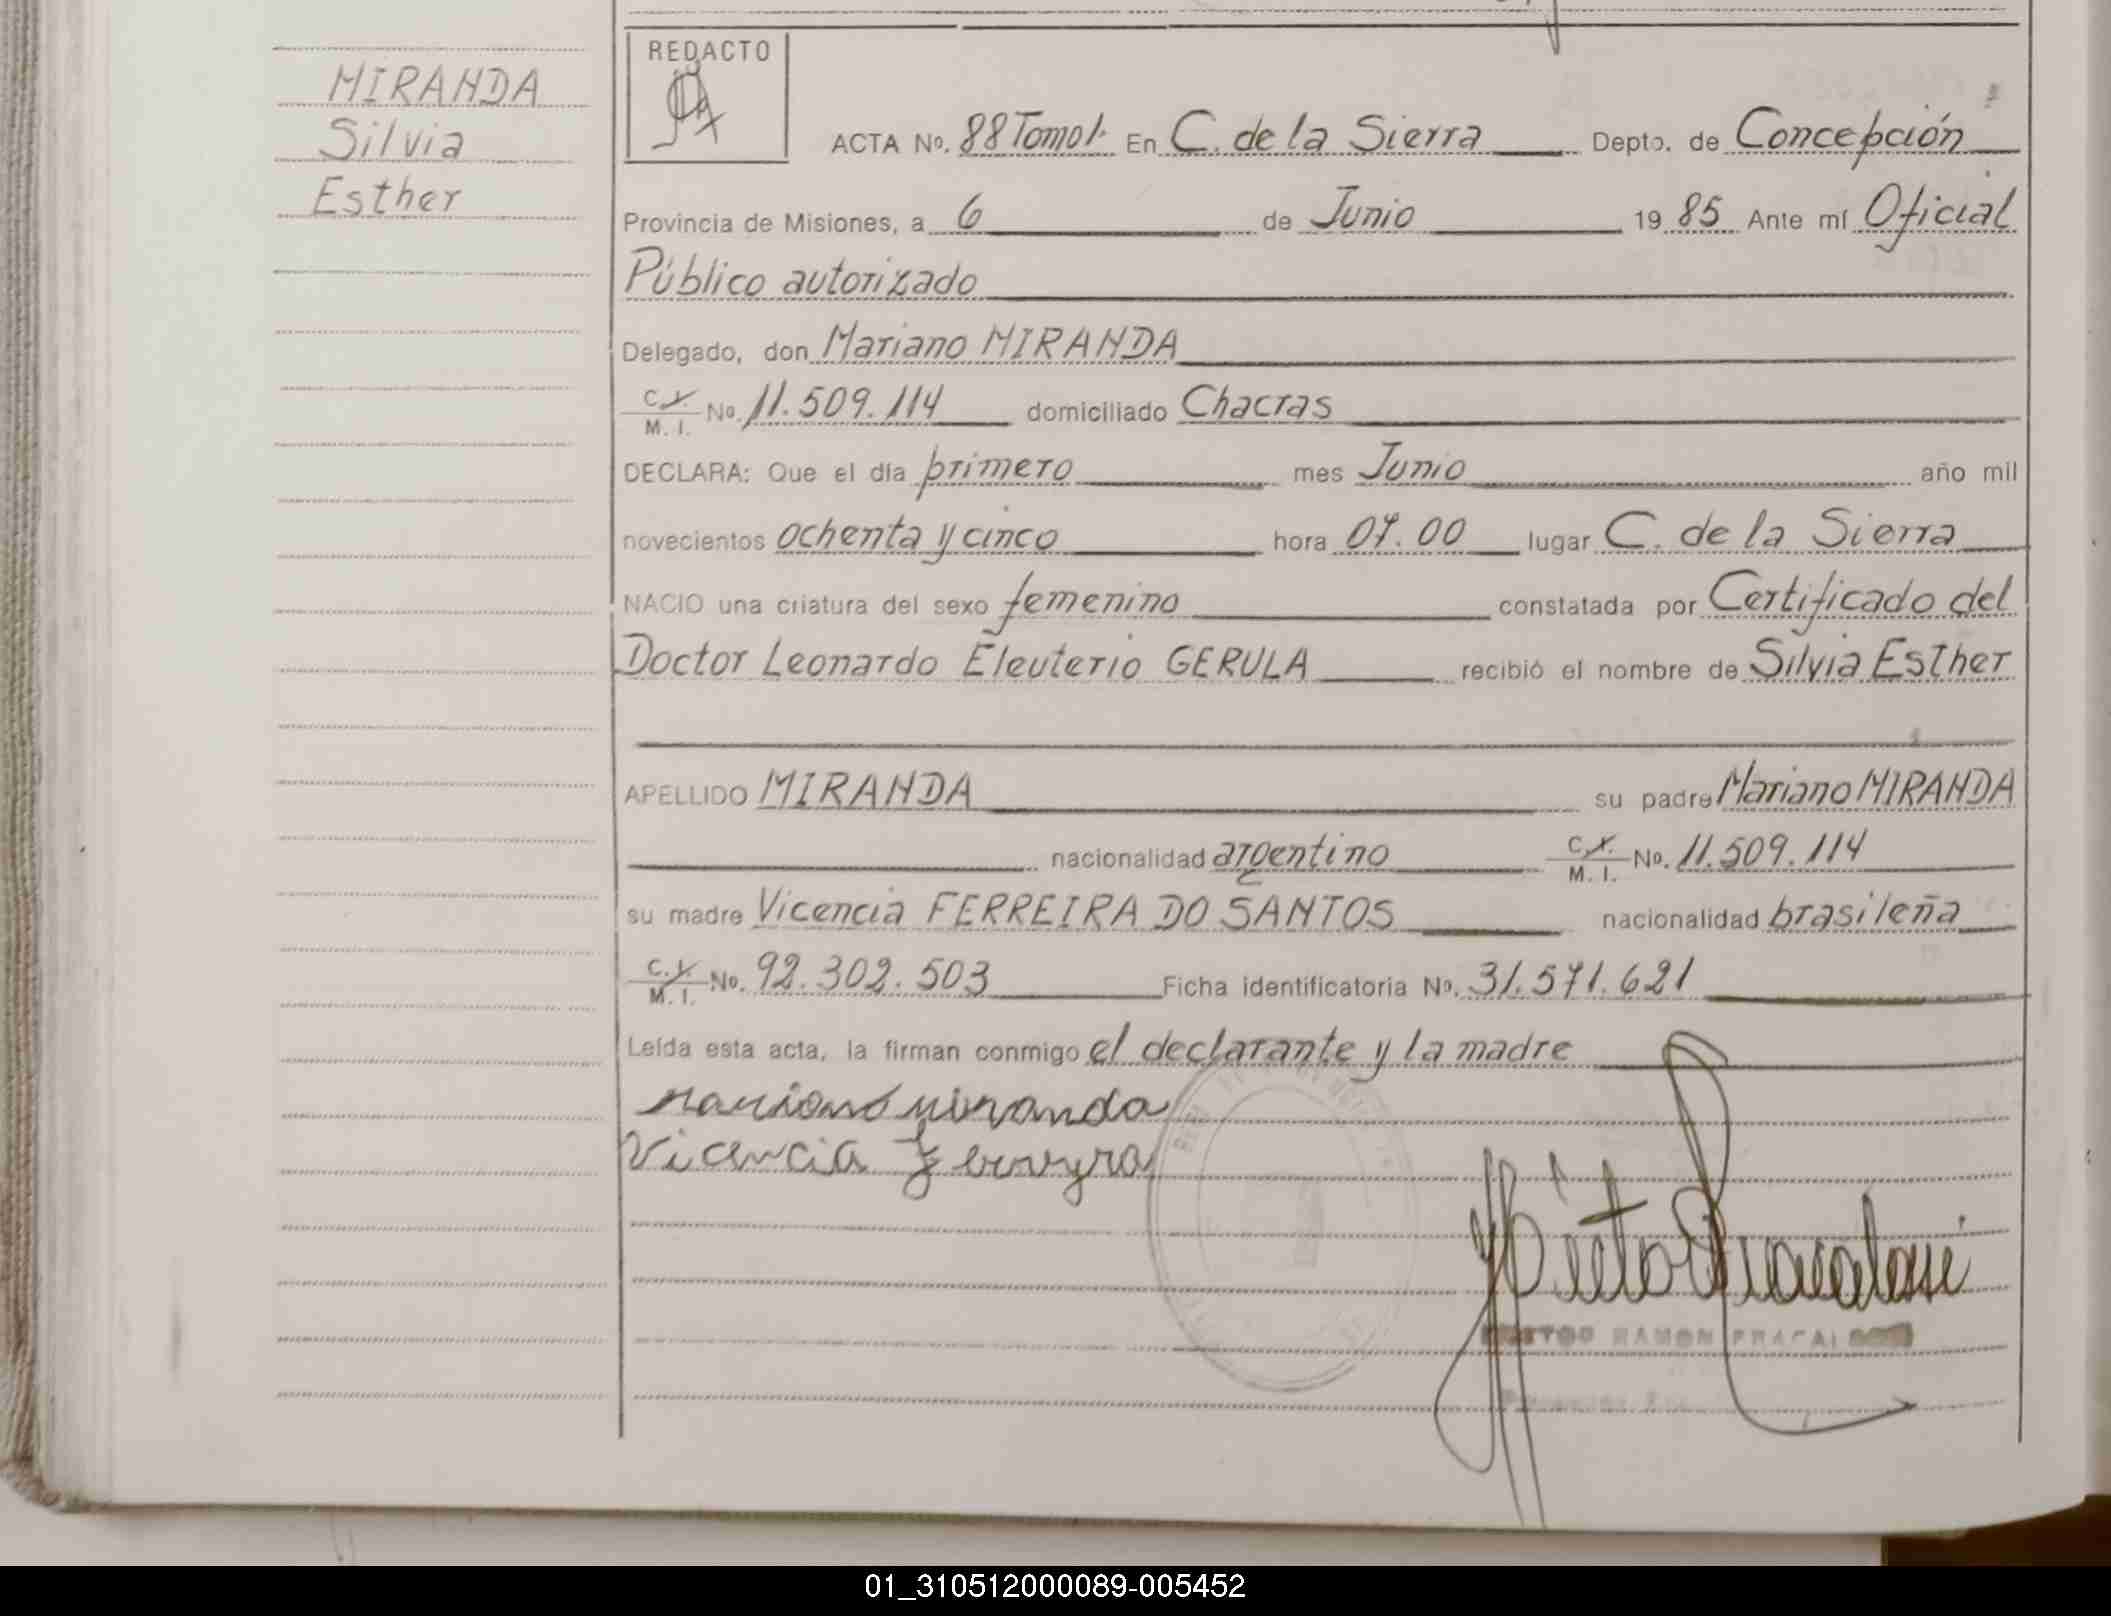 MIRANDA
Silvia
Esther
REDACTO
ACTA No. 88 Tomo 1. En C. de la Sierra Depto. de Concepción
Provincia de Misiones, a 6 de Junio 19 85 Ante mí Oficial
Público autorizado
Delegado, don Mariano MIRANDA
C.I. M.I. No. 11.509.114 domiciliado Chacras
DECLARA: Que el día primero mes Junio año mil
novecientos ochenta y cinco hora 07.00 lugar C. de la Sierra
NACIO una criatura del sexo femenino constatada por Certificado del
Doctor Leonardo Eleuterio GERULA recibió el nombre de Silvia Esther
APELLIDO MIRANDA su padre Mariano MIRANDA
nacionalidad argentino C.I. M.I. No. 11.509.114
su madre Vicencia FERREIRA DO SANTOS nacionalidad brasileña
C.I. M.I. No. 92.302.503 Ficha identificatoria No. 31.571.621
Leída esta acta, la firman conmigo el declarante y la madre
mariano miranda
Vicencia Ferreyra
RAMON
01_310512000089-005452